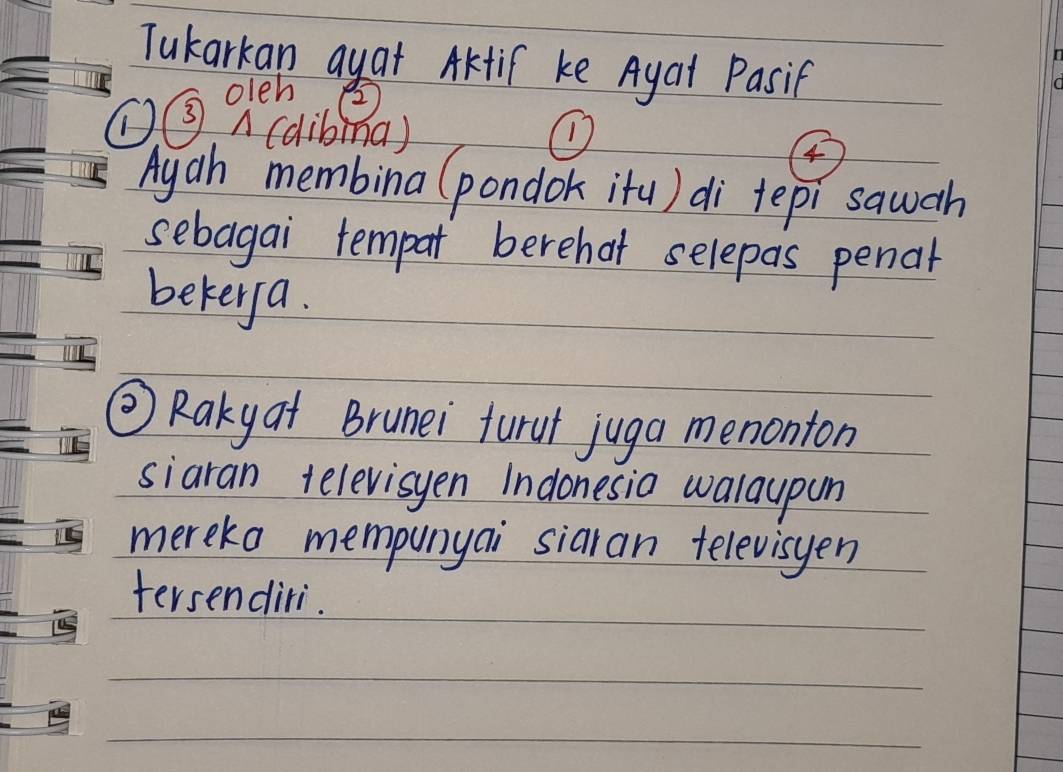 Tukarkan ayat Aktif ke Ayat Pasif
oleh ②
① ③ ʌ (dibina) ① ④
Ayah membina (pondok itu) di tepi sawah
sebagai tempat berehat selepas penat
bekerja.
② Rakyat Brunei turut juga menonton
siaran televisyen Indonesia walaupun
mereka mempunyai siaran televisyen
tersendiri.